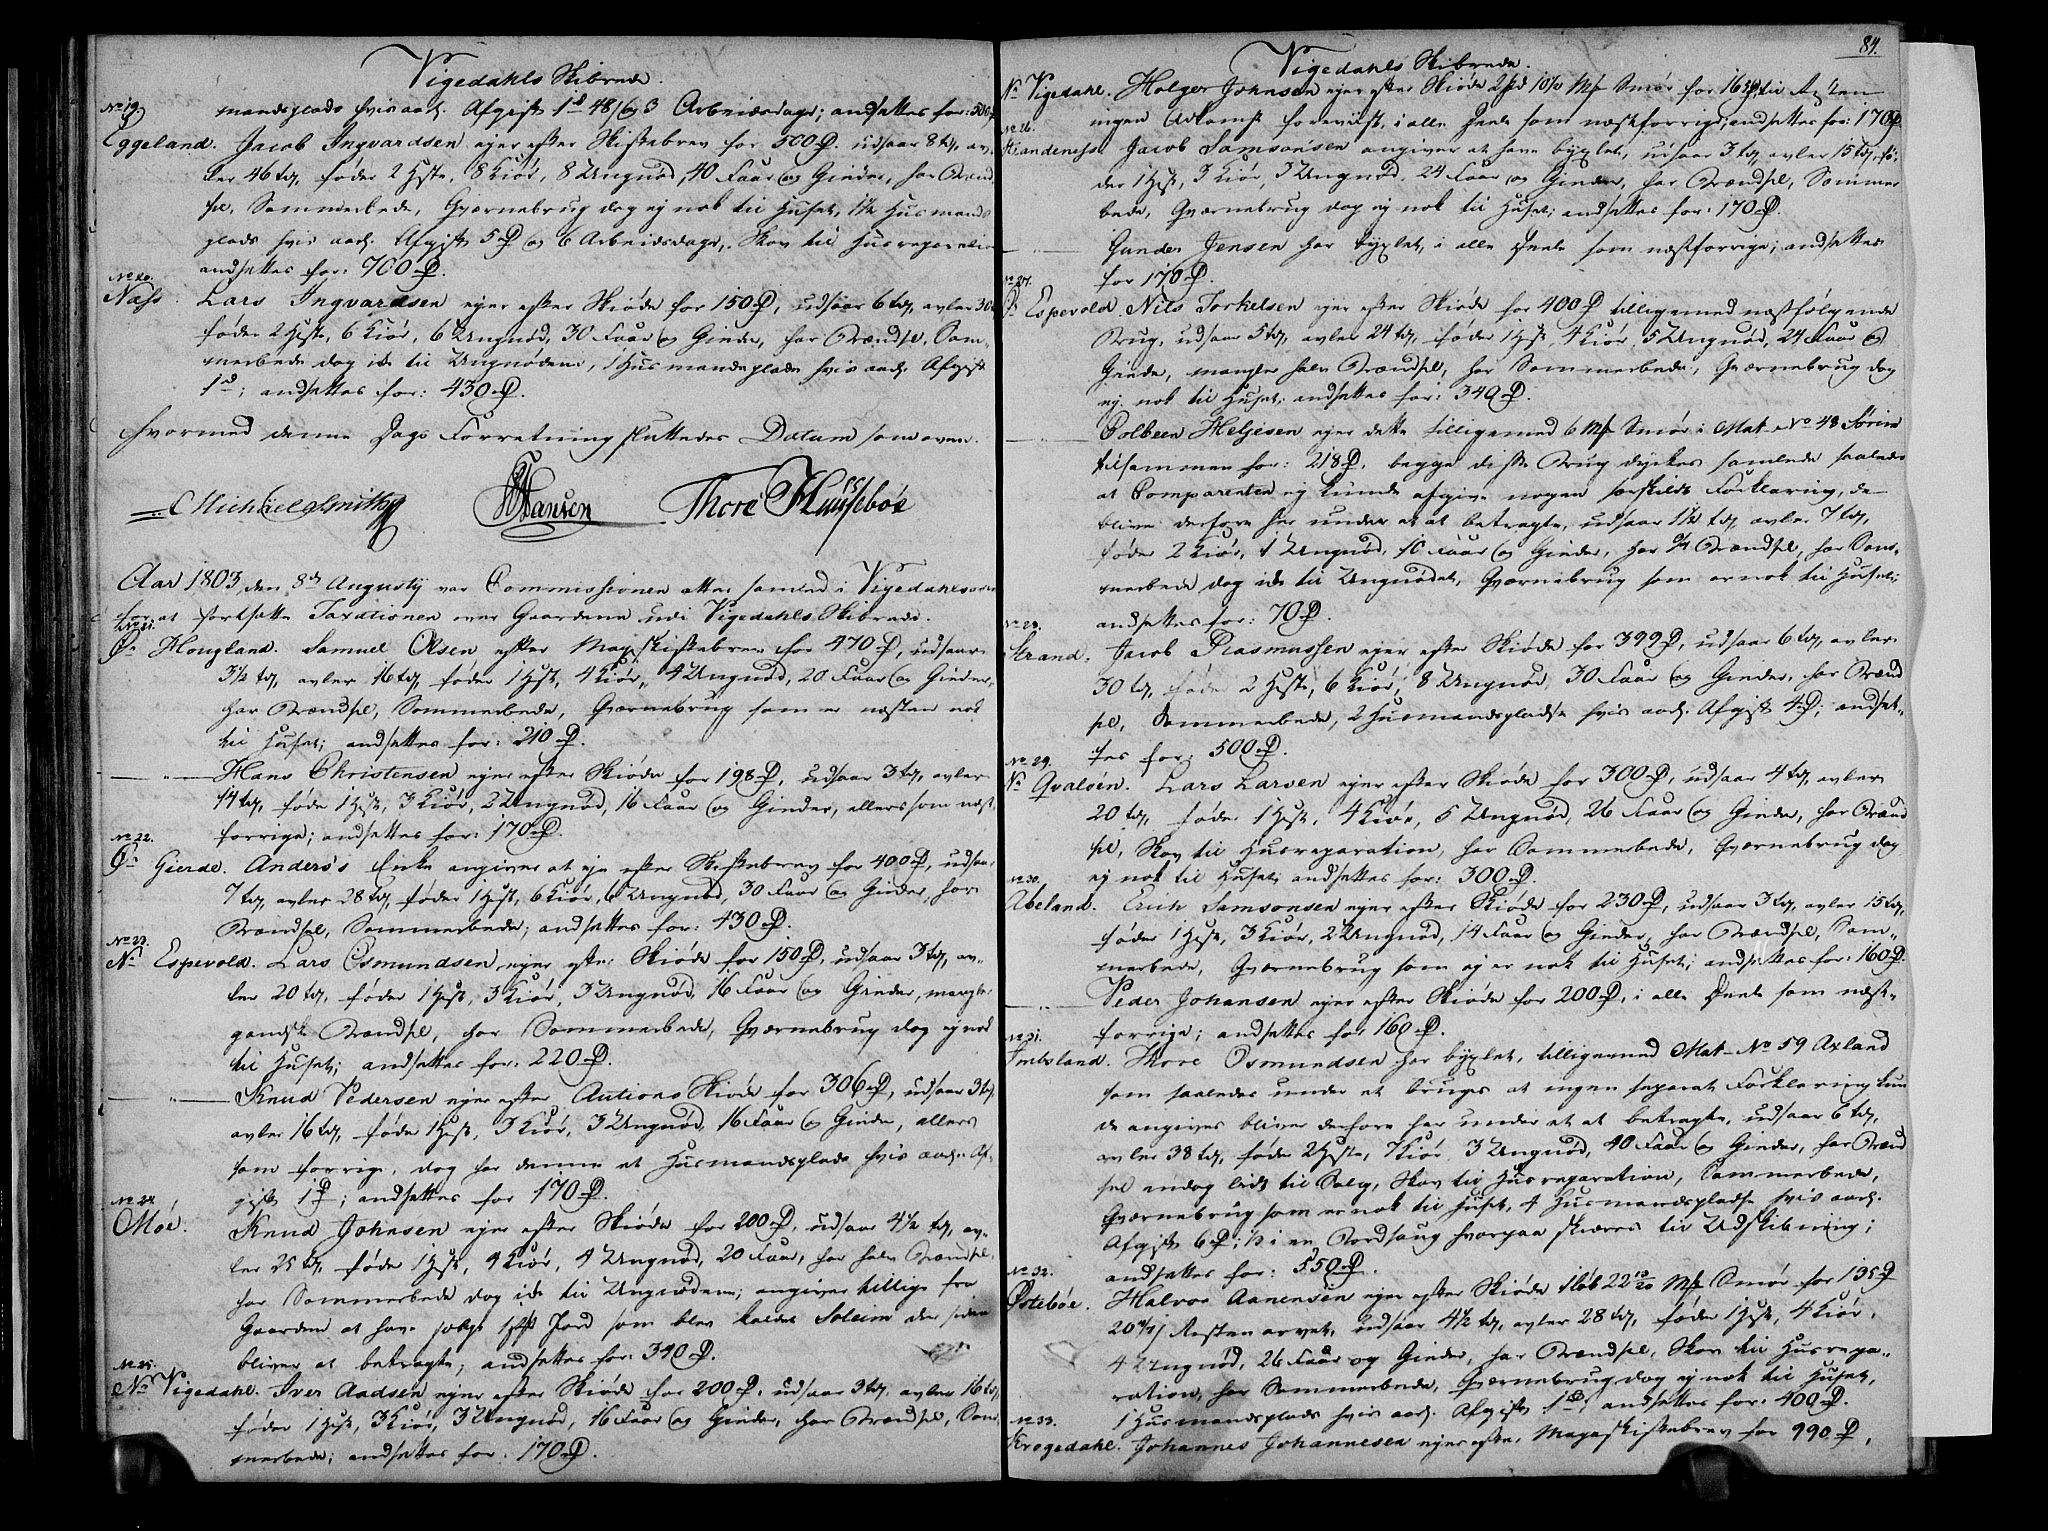 Vigedahls Skibrede.
mandsplads hvis aarl. Afgift 1 rd 48 s og 3 Arbeidsdage; andsættes for: 500 rd
No 19.
Eggeland. Jacob Ingvardsen ejer efter Skiftebrev for 500 rd. udsaar 8 td, av-
ler 46 td, føder 2 Heste, 8 Kiør, 8 Ungnød, 40 Faar og Gieder, har Brænd-
sel, Sommerbede, Qværnebrug dog ej nok til Huset, 1½ Husmands-
plads hvis aarl. Afgift 5 rd og 6 Arbeidsdage, Skov til Husreparation
andsættes for: 700 rd.
No 20.
Næss. Lars Ingvardsen ejer efter Skiøde for 150 rd, udsaar 6 td, avler 30
føder 2 Heste, 6 Kiør, 6 Ungnød, 30 Faar og Gieder, har Brændsel, Som-
merbede dog ide til Ungnødene, 1 Husmandsplads hvis aarl. Afgift
1 rd; andsættes for: 430 rd.
Hvormed denne Dags Forretning sluttedes Datum som oven.
Michael Smith HHansen Thore Huusebøe
Aar 1803 den 8de Augusty var Commissionen atter samled i Vigedahlsøren
for at fortsætte Taxationen over Gaardene udi Vigedahls Skibrede.
No 21.
Ø. Hougland. Samuel Olsen efter Mageskiftebrev for 470 rd, udsaar
3½ td, avler 16 td, føder 1 Hest, 4 Kiør, 4 Ungnød, 20 Faar og Gieder,
har Brændsel, Sommerbede, Qværnebrug som er næsten nok
til Huset; andsættes for: 210 rd.
— " — Hans Christensen ejer efter Skiøde for 198 rd, udsaar 3 td, avler
14 td, føder 1 Hest, 3 Kiør, 2 Ungnød, 16 Faar og Gieder, ellers som næst-
forrige; andsættes for: 170 rd.
No 22.
Ø. Gierde. Anders's Enke angiver at eje efter Skiftebrev for 400 rd, udsaar
7 td, avler 28 td, føder 1 Hest, 6 Kiør, 6 Ungnød, 30 Faar og Gieder, har
Brændsel, Sommerbede; andsættes for: 430 rd.
No 23.
N. Espevold. Lars Osmundsen ejer efter Skiøde for 150 rd, udsaar 3 td, av-
ler 20 td, føder 1 Hest, 3 Kiør, 3 Ungnød, 16 Faar og Gieder, mangler
gandske Brændsel, har Sommerbede, Qværnebrug dog ej nok
til Huset; andsættes for: 220 rd.
— " — Knud Pedersen ejer efter Auctions Skiøde for 306 rd, udsaar 3 td,
avler 16 td, føder 1 Hest, 3 Kiør, 3 Ungnød, 16 Faar og Gieder, ellers
som forrige, dog har denne et Husmandsplads hvis aarl. Af-
gift 1 rd; andsættes for 170 rd.
No 24.
Moe. Knud Johnsen ejer efter Skiøde for 200 rd, udsaar 4½ td, av-
ler 25 td, føder 1 Hest, 4 Kiør, 4 Ungnød, 20 Faar, har halv Brændsel,
har Sommerbede dog ide til Ungnødene; angiver tillige fra
Gaarden at have solgt Jord som blev kaldet Soleim der siden
bliver at betragte; andsættes for: 340 rd.
No 25.
N. Vigedahl. Iver Aadsen ejer efter Skiøde for 200 rd, udsaar 3 td, avler 16 td,
føder 1 Hest, 3 Kiør, 3 Ungnød, 16 Faar og Gieder, har Brændsel, Som-
merbede; andsættes for: 170 rd.
84.
Vigedahls Skibrede.
N. Vigedahl. Holger Johnsen ejer efter Skiøde for til Resten
ingen Adkomst foreviist, i alle Deele som næstforrige; andsættes for: 170 rd
No 26.
Handeness. Jacob Samsonsen angiver at have byxlet, udsaar 3 td, avler 15 td, fø-
der 1 Hest, 3 Kiør, 3 Ungnød, 24 Faar og Gieder, har Brændsel, Sommer-
bede, Qværnebrug dog ej nok til Huset; andsættes for: 170 rd.
— " — Gunder Jensen har byxlet, i alle Deele som næstforrige; andsættes
for 170 rd.
No 27.
Ø. Espevold Nils Torkelsen ejer efter Skiøde for 400 rd tilligemed næstfølgende
Brug, udsaar 5 td, avler 24 td, føder 1 Hest, 4 Kiør, 5 Ungnød, 24 Faar og
Giede, mangler halv Brændsel, har Sommerbede, Qværnebrug dog
ej nok til Huset; andsættes for: 340 rd.
— " — Colbeen Heljesen ejer dette tilligemed 6 Mk Smør i Mat. No 48
tilsammen for: 218 rd, begge disse Brug dyrkes samlede saaledes
at Comparenten ej kunde afgive nogen særskildt Forklaring, de
bliver derfore her under et at betragte, udsaar 1½ td, avler 7 td,
føder 2 Kiør, 1 Ungnød, 10 Faar og Gieder, har Brændsel, har Som-
merbede dog ide til Ungnødet, Qværnebrug som er nok til Huset;
andsættes for: 70 rd.
No 28.
Strand. Jacob Rasmussen ejer efter Skiøde for 399 rd, udsaar 6 td, avler
30 td, føder 2 Heste, 6 Kiør, 8 Ungnød, 30 Faar og Gieder, har Brænd-
sel, Sommerbede, 2 Husmandspladse hvis aarl. Afgift 4 rd; andsæt-
tes for: 500 rd.
No 29.
N. Qvaløen. Lars Larsen ejer efter Skiøde for 300 rd, udsaar 4 td, avler
20 td, føder 1 Hest, 4 Kiør, 5 Ungnød, 26 Faar og Gieder, har Brænd-
sel, Skov til Husreparation, har Sommerbede, Qværnebrug dog
ej nok til Huset; andsættes for: 300 rd.
No 30.
Abeland. Erich Samsonsen ejer efter Skiøde for 230 rd, udsaar 3 td, avler 15 td,
føder 1 Hest, 3 Kiør, 2 Ungnød, 14 Faar og Gieder, har Brændsel, Som-
merbede, Qværnebrug som ej er nok til Huset; andsættes for: 160 rd.
— " — Peder Johansen ejer efter Skiøde for 200 rd, i alle Deele som næst-
forrige; andsættes for 160 rd.
No 31.
Imbsland. Thore Osmundsen har byxlet, tilligemed Mat. No 59 Axland
som saaledes under et bruges at ingen separat Forklaring kun-
de angives bliver derfore her under et at betragte, udsaar 6 td,
avler 38 td, føder 2 Heste, 7 Kiør, 3 Ungnød, 40 Faar og Gieder, har Brænd-
sel endog lidt til Salg, Skov til Husreparation, Sommerbede,
Qværnebrug som er nok til Huset, 4 Husmandspladse hvis aarl.
Afgift 6 rd; ½ i en Bordsaug hvorpaa skiæres til Udskibning;
andsættes for: 550 rd.
No 32.
Østebøe. Halvor Aanensen ejer efter Skiøde 1 Løb 22 10/20 Mk Smør for 135 rd
Resten arvet, udsaar 4½ td, avler 28 td, føder 1 Hest, 4 Kiør,
4 Ungnød, 26 Faar og Gieder, har Brændsel, Skov til Husrepa-
ration, har Sommerbede, Qværnebrug dog ej nok til Huset,
1 Husmandsplads hvis aarl. Afgift 1 rd; andsættes for: 400 rd.
No 33.
Krogedahl. Johannes Johannesen ejer efter Mageskiftebrev for 990 rd,